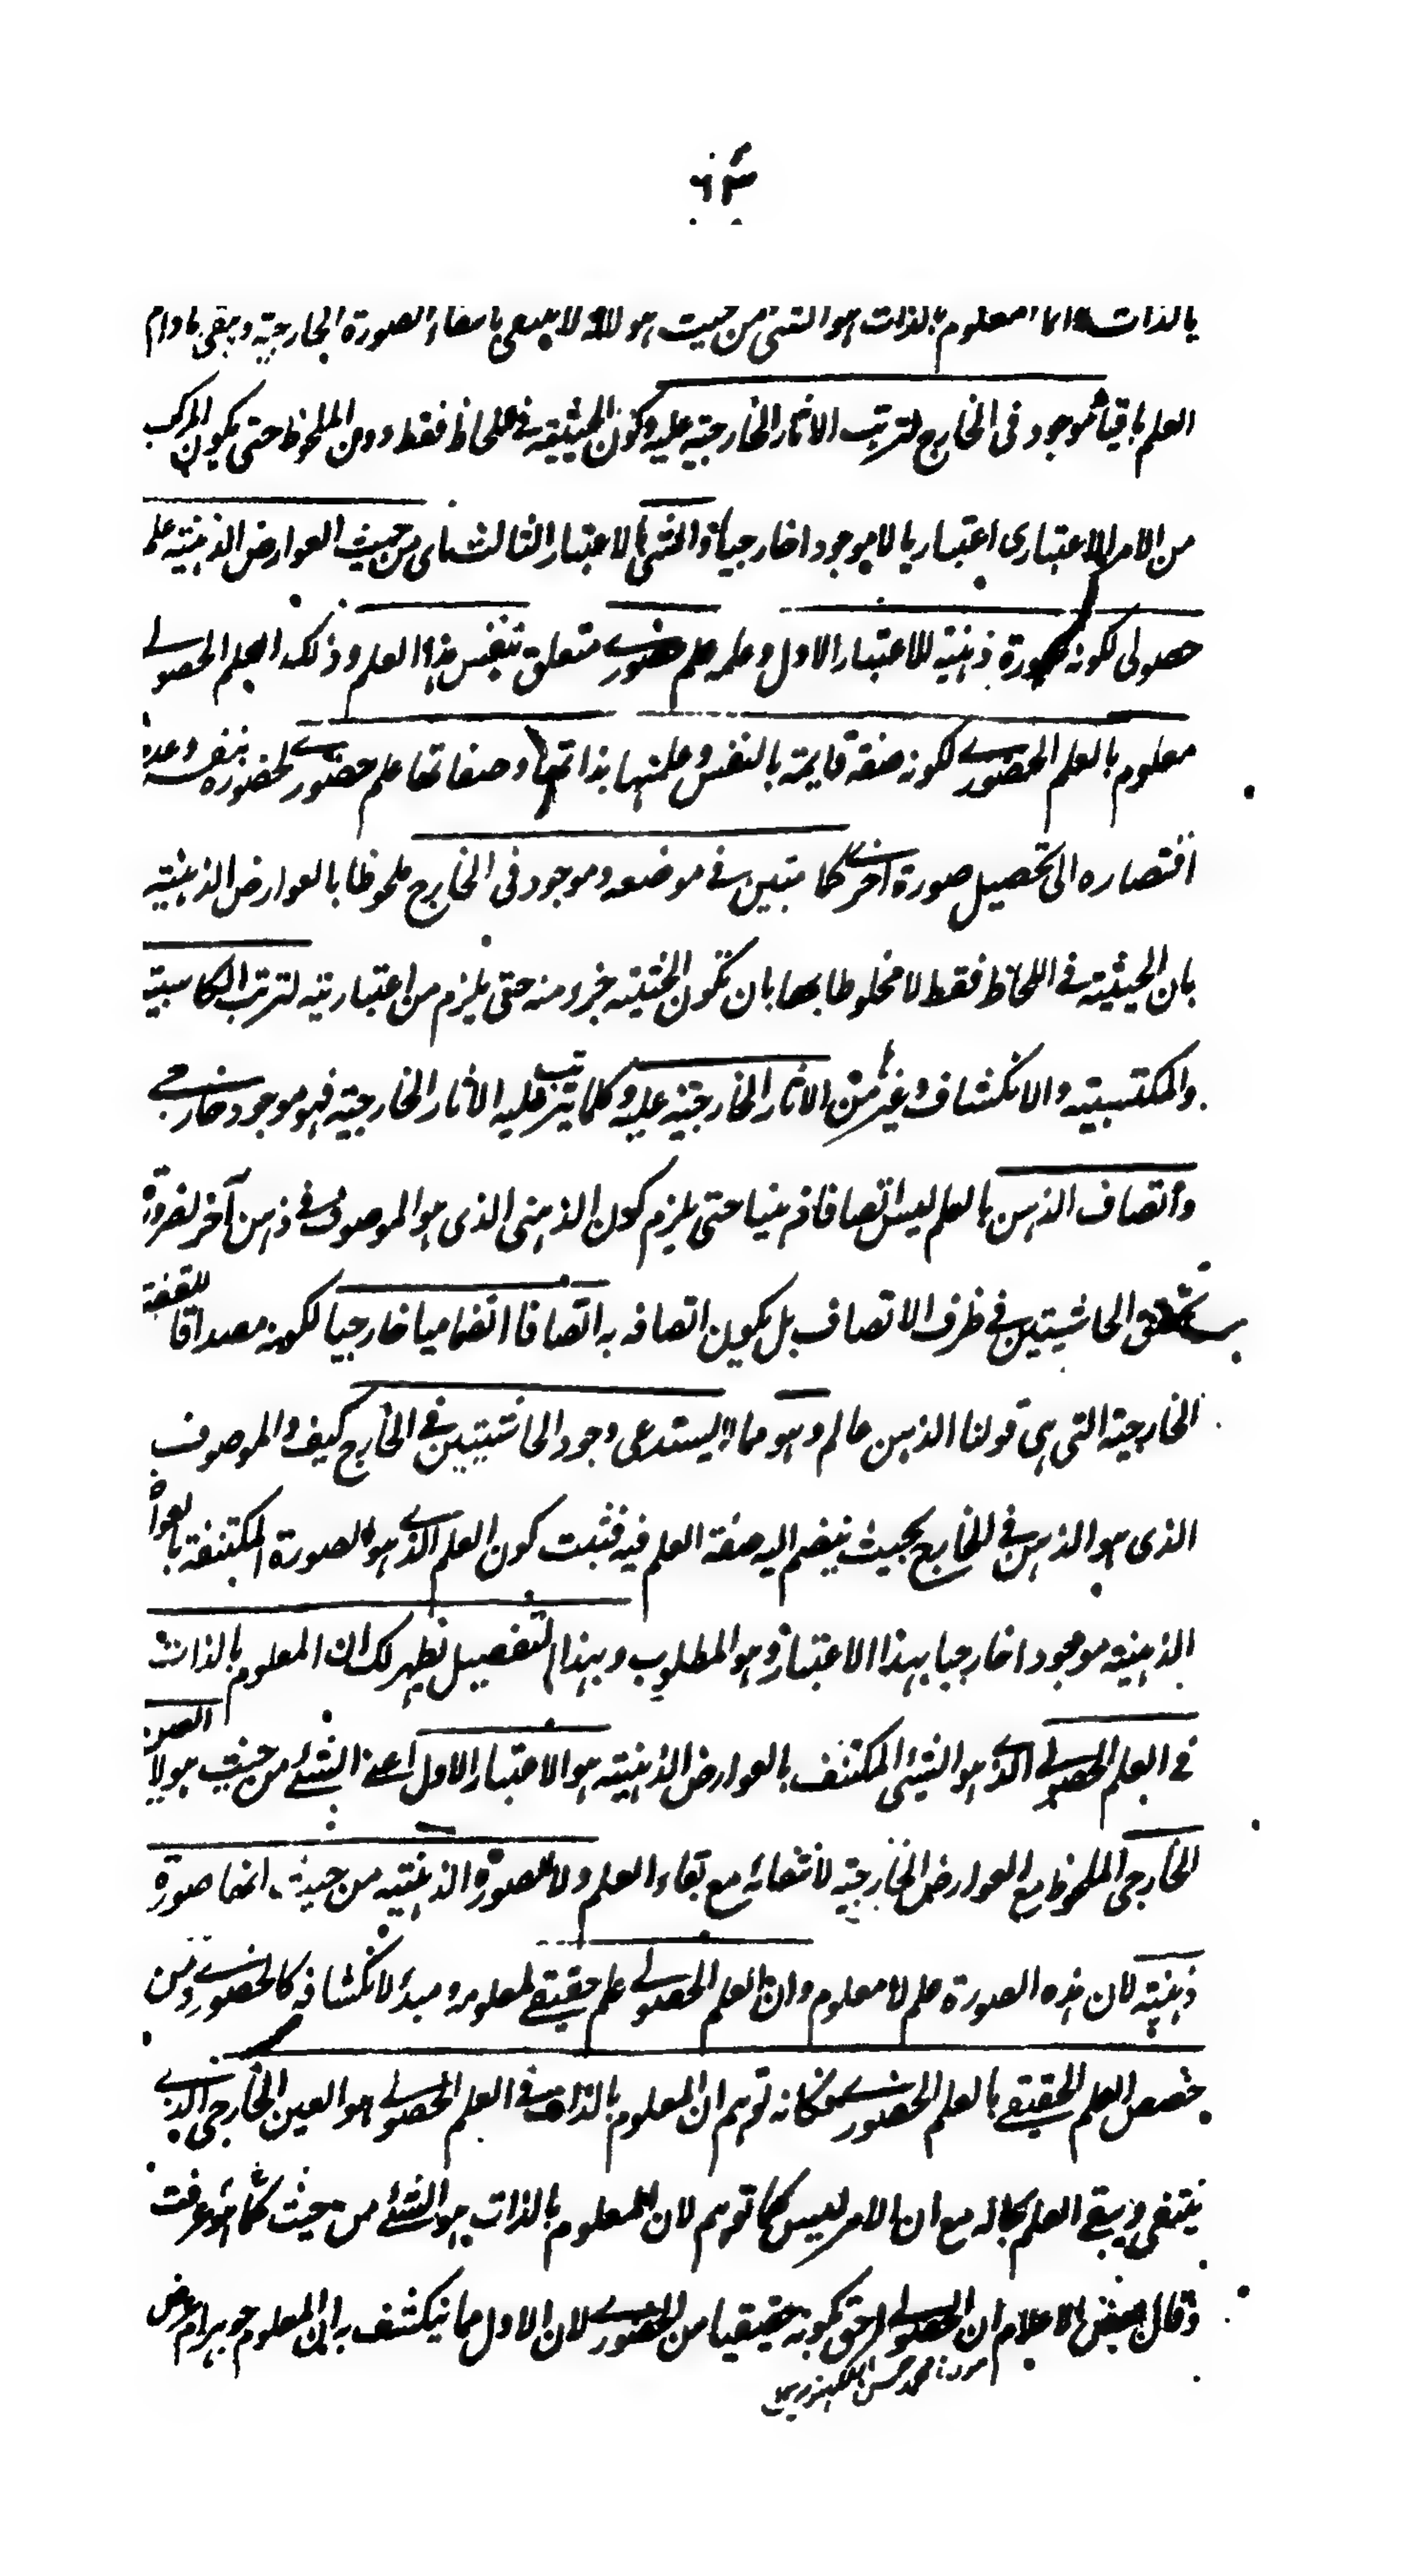 ٦٣
بالذات وانما المعلوم بالذات هو الشئ من حيث هو لانه لا ينتفي بانتفاء الصورة الخارجية ويبقى مادام
العلم باقيا موجود فى الخارج لترتب الاثار الخارجية عليه وكون الحيثية في اللحاظ فقط دون الملحوظ حتى يكون المركب
من الامر الاعتبارى اعتباريا لا موجودا خارجيا والشئ بالاعتبار الثالث اى من حيث العوارض الذهنية علم
حصولى لكونه صورة ذهنية للاعتبار الاول وعلمه علم حضوري متعلق بنفس هذا العلم وذلك العلم الحصولي
معلوم بالعلم الحضوري لكونه صفة قايمة بالنفس وعلمنها بذاتها وصفاتها علم حضوري لحضوره بنفسه وعدم
افتصاره الى تحصيل صورة اخرى كما تبين في موضعه وموجود فى الخارج ملحوظا بالعوارض الذهنية
بان الحيثية في اللحاظ فقط لا مخلوطا بها بان تكون الحيثية جزء منه حتى يلزم من اعتباريته لترتب الكاسبية
والمكتسبية والانكشاف وغيرها من الاثار الخارجية عليه وكلما يترتب عليه الاثار الخارجية فهو موجود خارجي
واتصاف الذهن بالعلم ليس اتصافا ذهنيا حتى يلزم كون الذهنى الذى هو الموصوف في ذهن آخر لضرورة
تحقق الحاشيتين في ظرف الاتصاف بل يكون اتصافه به اتصافا انضماميا خارجيا لكونه مصداقا للقضية
الخارجية التى هى قولنا الذهن عالم وهو مما يستدعى وجود الحاشيتين في الخارج كيف والموصوف
الذى هو الذهن في الخارج بحيث ينضم اليه صفة العلم فيه فثبت كون العلم الذي هو الصورة المكتنفة بالعوا
الذهنية موجودا خارجيا بهذا الاعتبار وهو المطلوب وبهذا التفصيل يظهر لك ان المعلوم بالذات
في العلم الحصولي الذي هو الشئ المكتنف بالعوارض الذهنية هو الاعتبار الاول اعنى الشئ من حيث هو لا العين
الخارجى الملحوظ مع العوارض الخارجية لانتفائه مع بقاء العلم ولا الصورة الذهنية من حيث انها صورة
ذهنية لان هذه الصورة علم لا معلوم وان العلم الحصولي علم حقيقي لمعلومه ومبدء لانكشافه كالحضوري ومن
خصص العلم الحقيقي بالعلم الحضوري فكانه توهم ان المعلوم بالذات في العلم الحصولي هو العين الخارجى الذي
ينتفي ويبقي العلم بحاله مع ان الامر ليس كما توهم لان المعلوم بالذات هو الشئ من حيث هو كما عرفت
وقال بعض الاعلام ان الحصولي احق بكونه حقيقيا من الحضوري لان الاول مما ينكشف به ان المعلوم جوهر ام عرض
محمد حسن